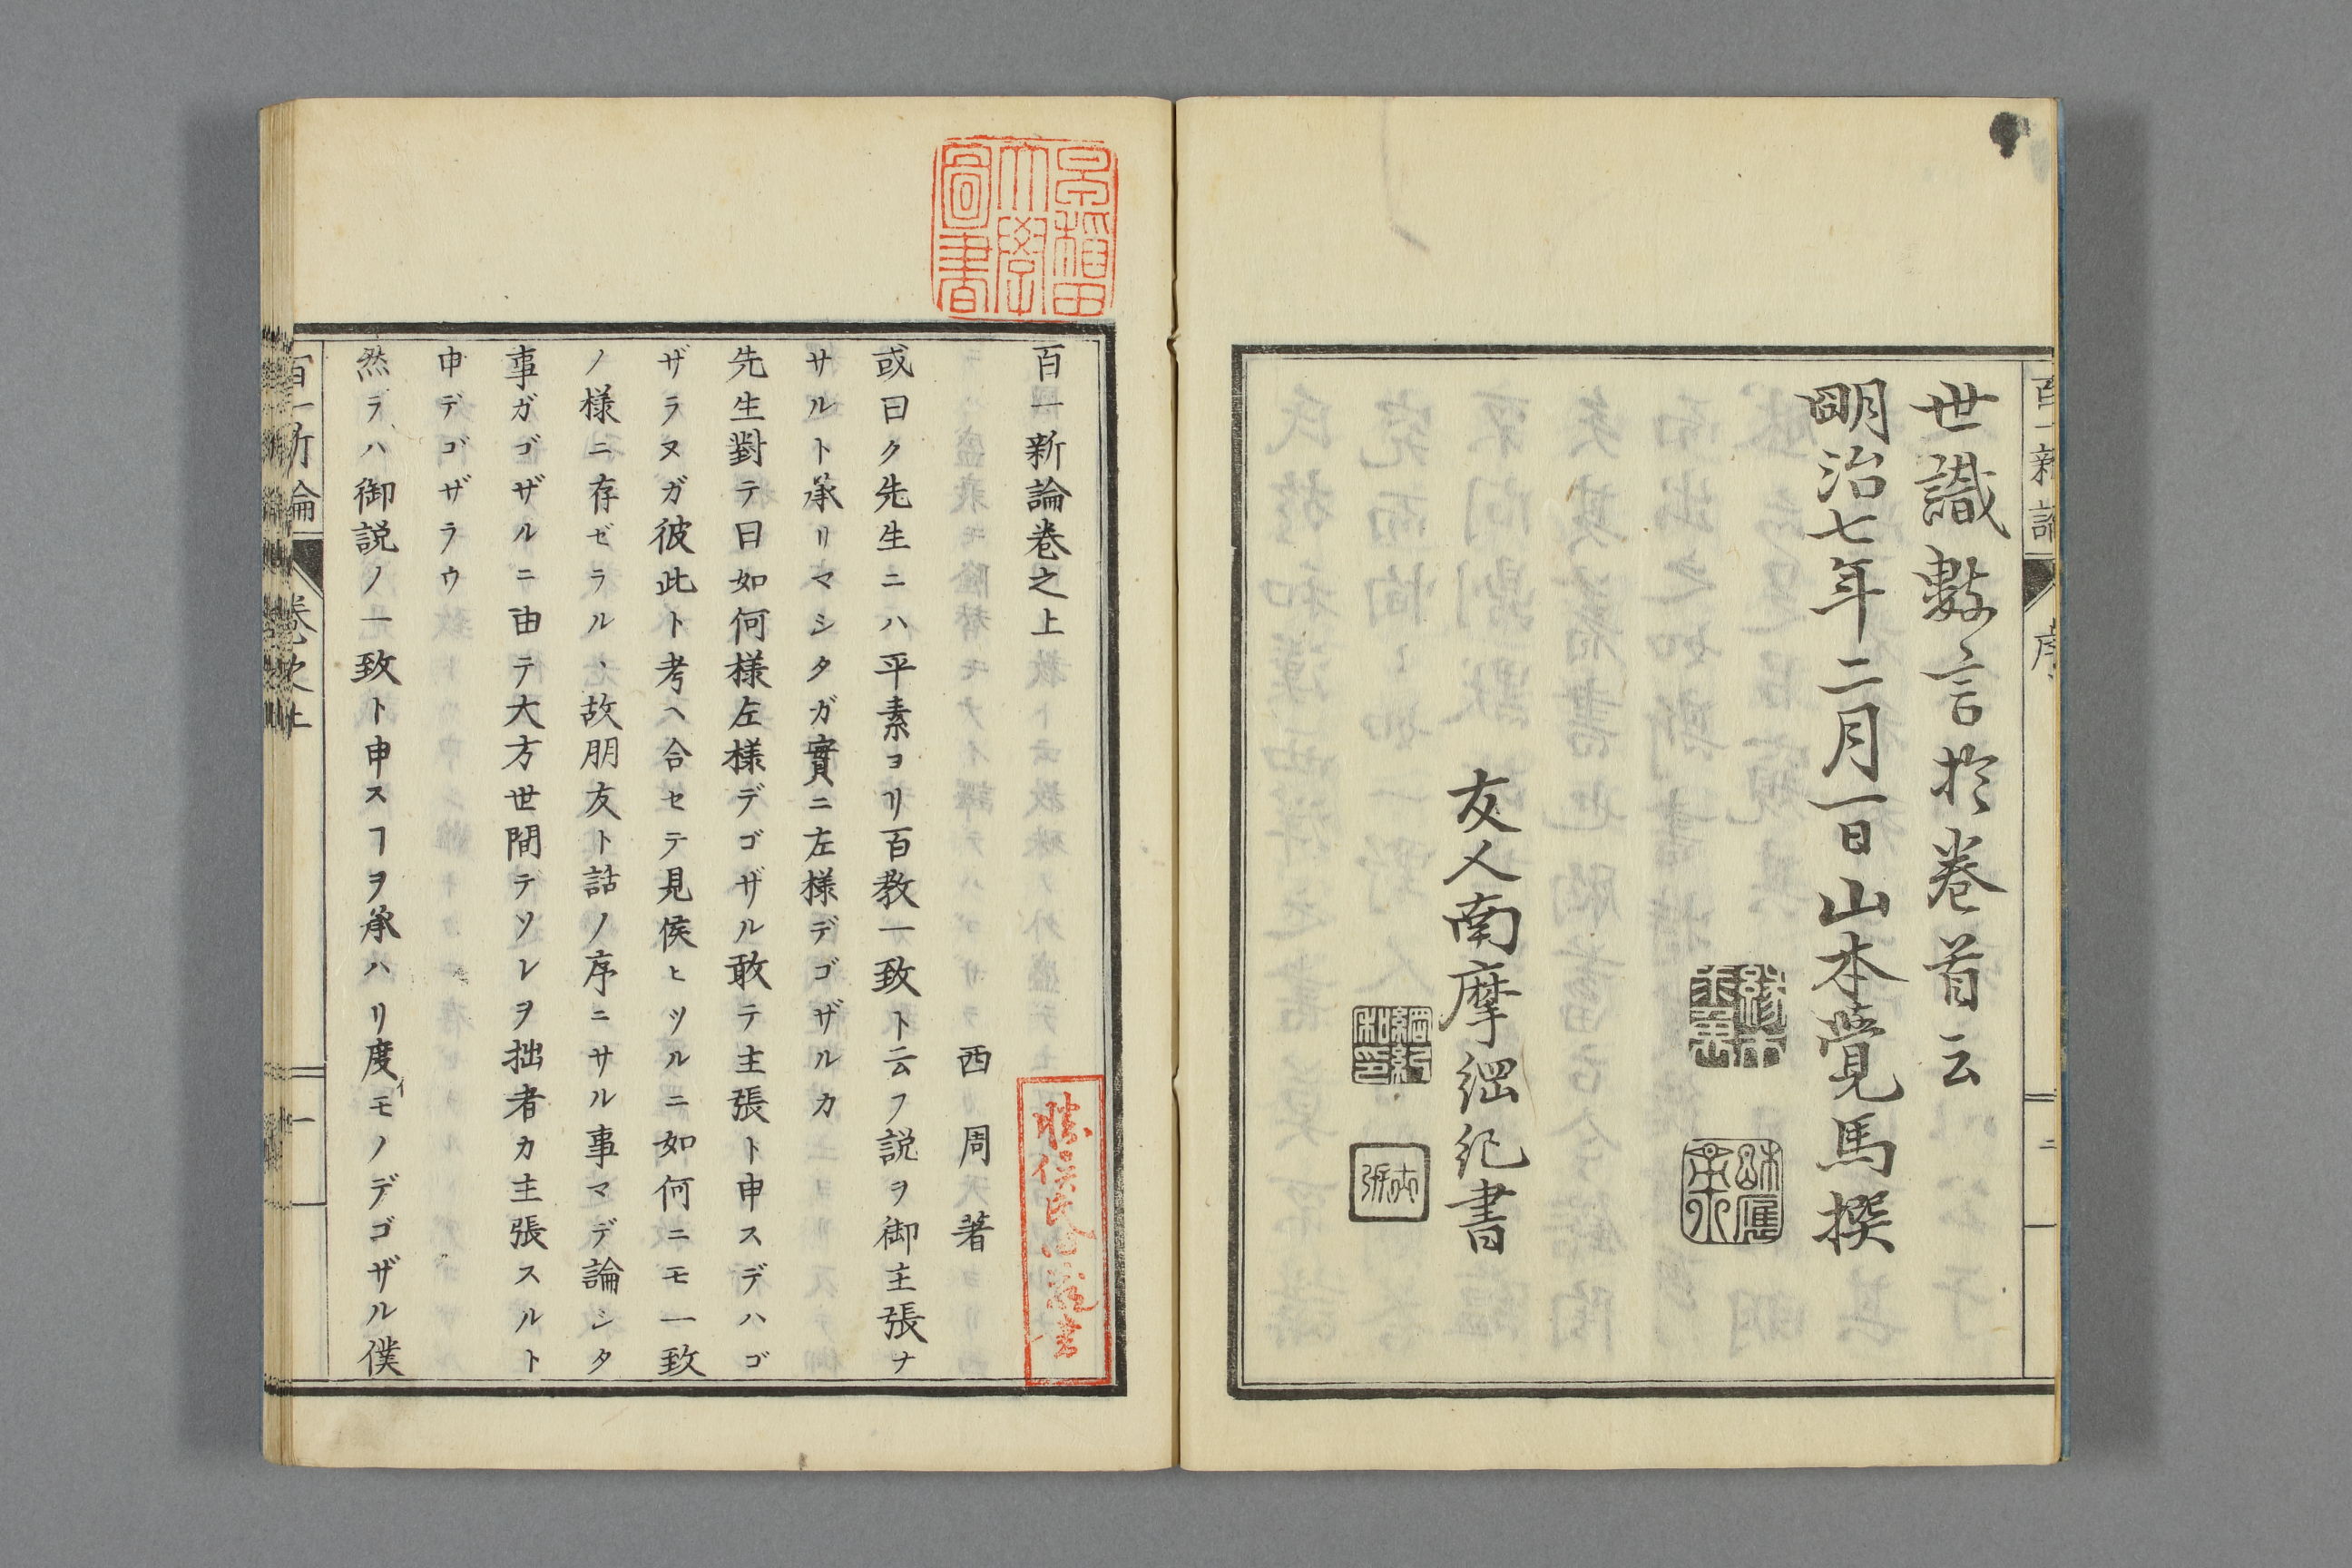 百一新論
序
世識數言於卷首云
明治七年二月一日山本覺馬撰
友人南摩綱紀書
早稲田大學圖書
百一新論卷之上
西周著
或曰ク先生ニハ平素ヨリ百教一致ト云フ説ヲ御主張ナ
サルト承リマシタガ實ニ左様デゴザルカ
先生對テ曰如何様左様デゴザル敢テ主張ト申スデハゴ
ザラヌガ彼此ト考ヘ合セテ見侯ヒツルニ如何ニモ一致
ノ様ニ存ゼラルヽ故朋友ト話ノ序ニサル事マデ論シタ
事ガゴザルニ由テ大方世間テソレヲ拙者カ主張スルト
申デゴザラウ
然ラハ御説ノ一致ト申スヿヲ承ハリ度イモノデゴザル僕
百一新論 卷之上 一